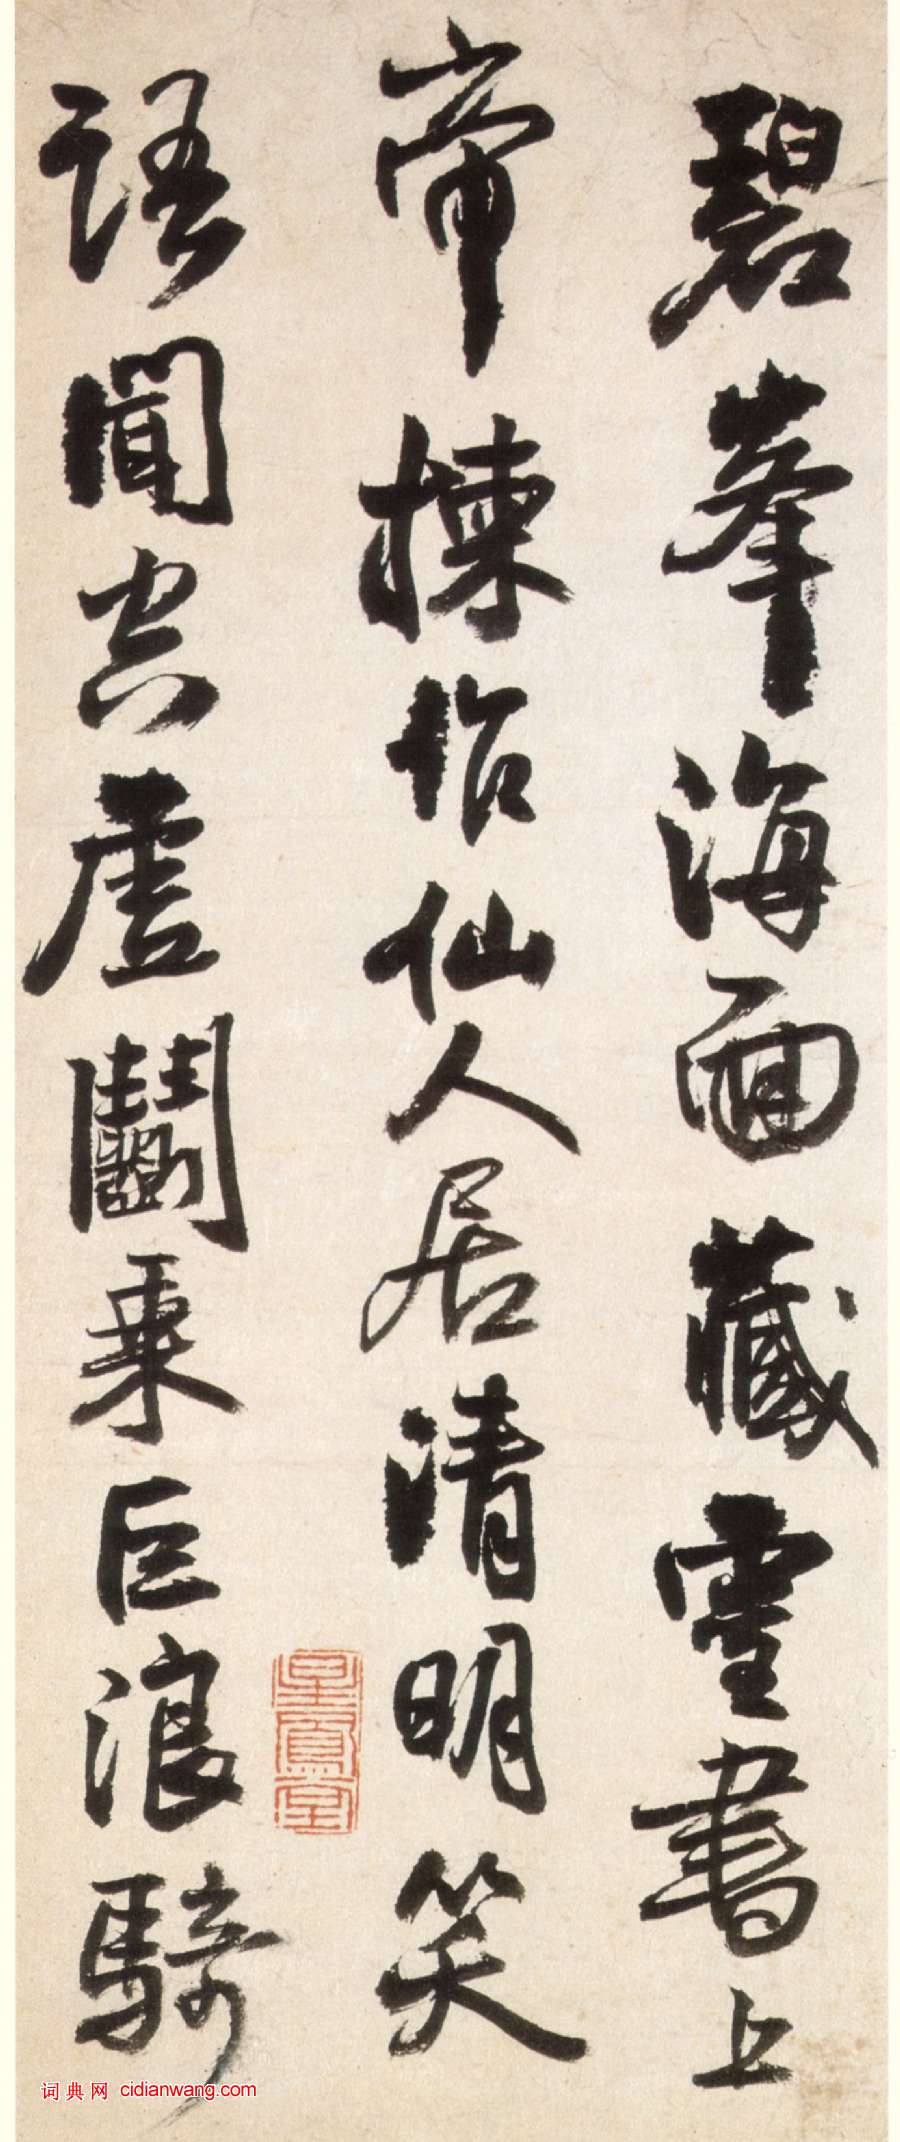 碧峯海面藏靈書上
帝揀作仙人居清明笑
語聞空虛鬭乘巨浪騎
星鳳堂
词典网 cidianwang.com